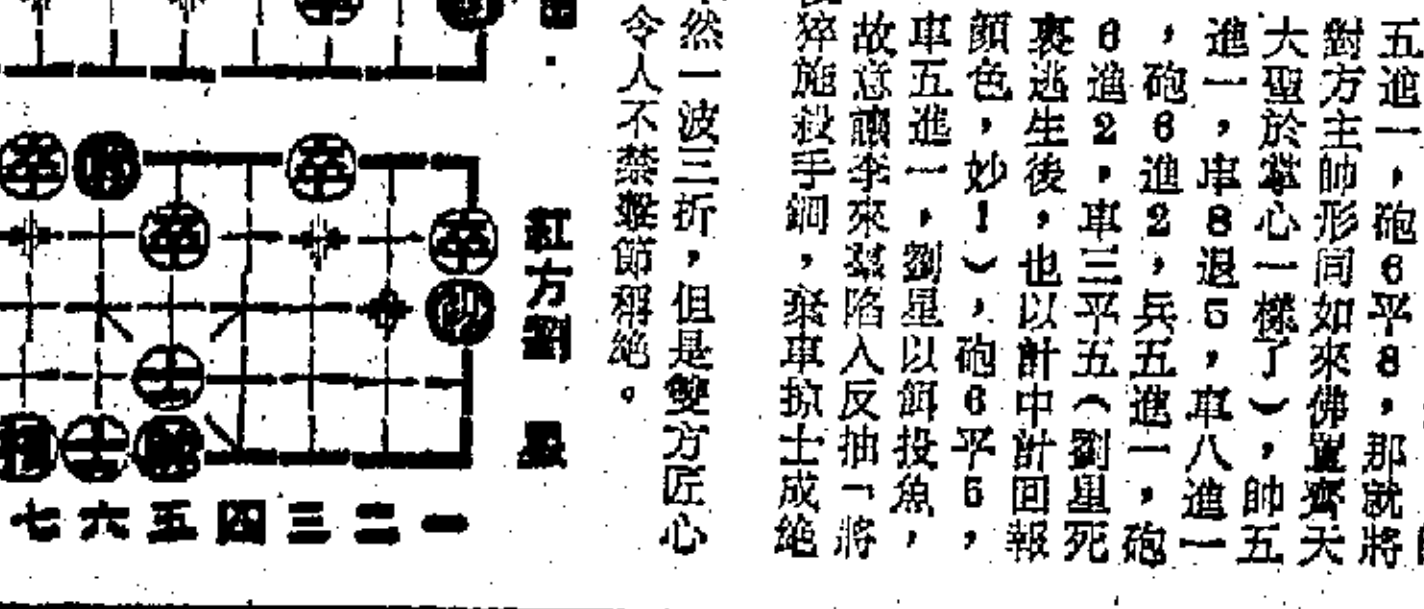 五進一，砲6平8，那就將
對方主帥形同如來佛置齊天
大聖於掌心一樣了），帥五
進一，車8退5，車八進一
，砲6進2，兵五進一，砲
6進2，車三平五（劉星死
裏逃生後，也以計中計回報
顏色，妙！），砲6平5，
車五進一，劉星以餌投魚，
故意讓李來羣陷入反抽「將
猝施殺手鐧，棄車掠士成絕
然一波三折，但是雙方匠心
令人不禁擊節稱絕。
紅方劉 星
卒 卒
卒 卒
士
士
七六五四三二一